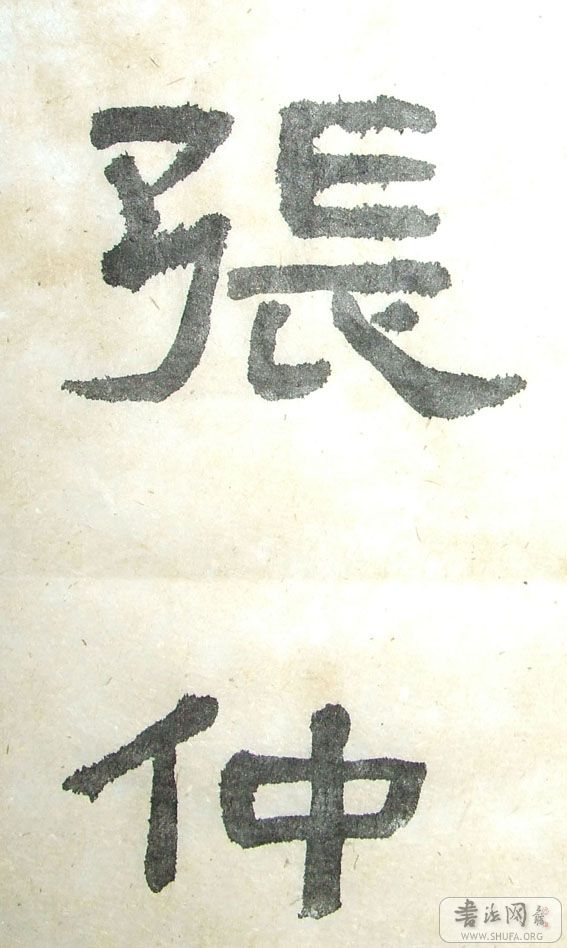 張
仲
書法网
WWW.SHUFA.ORG